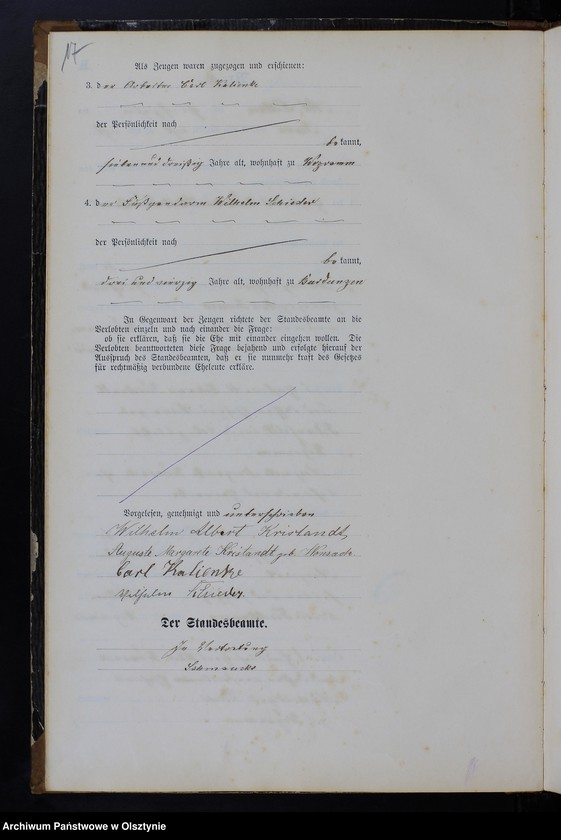 17
Als Zeugen waren zugezogen und erschienen:
3. der Arbeiter Carl Kalienke
der Persönlichkeit nach
bekannt,
siebenunddreißig Jahre alt, wohnhaft zu
4. der Fußgendarm Wilhelm Schieder
der Persönlichkeit nach
bekannt,
drei und vierzig Jahre alt, wohnhaft zu Bardungen
In Gegenwart der Zeugen richtete der Standesbeamte an die
Verlobten einzeln und nach einander die Frage:
ob sie erklären, daß sie die Ehe mit einander eingehen wollen. Die
Verlobten beantworteten diese Frage bejahend und erfolgte hierauf der
Ausspruch des Standesbeamten, daß er sie nunmehr kraft des Gesetzes
für rechtmäßig verbundene Eheleute erkläre.
Vorgelesen, genehmigt und unterschrieben
Wilhelm Albert Kristandt,
Auguste Margarete Kristandt geb.
Carl Kalienke
Wilhelm Schieder.
Der Standesbeamte.
In Vertretung
Archiwum Państwowe w Olsztynie